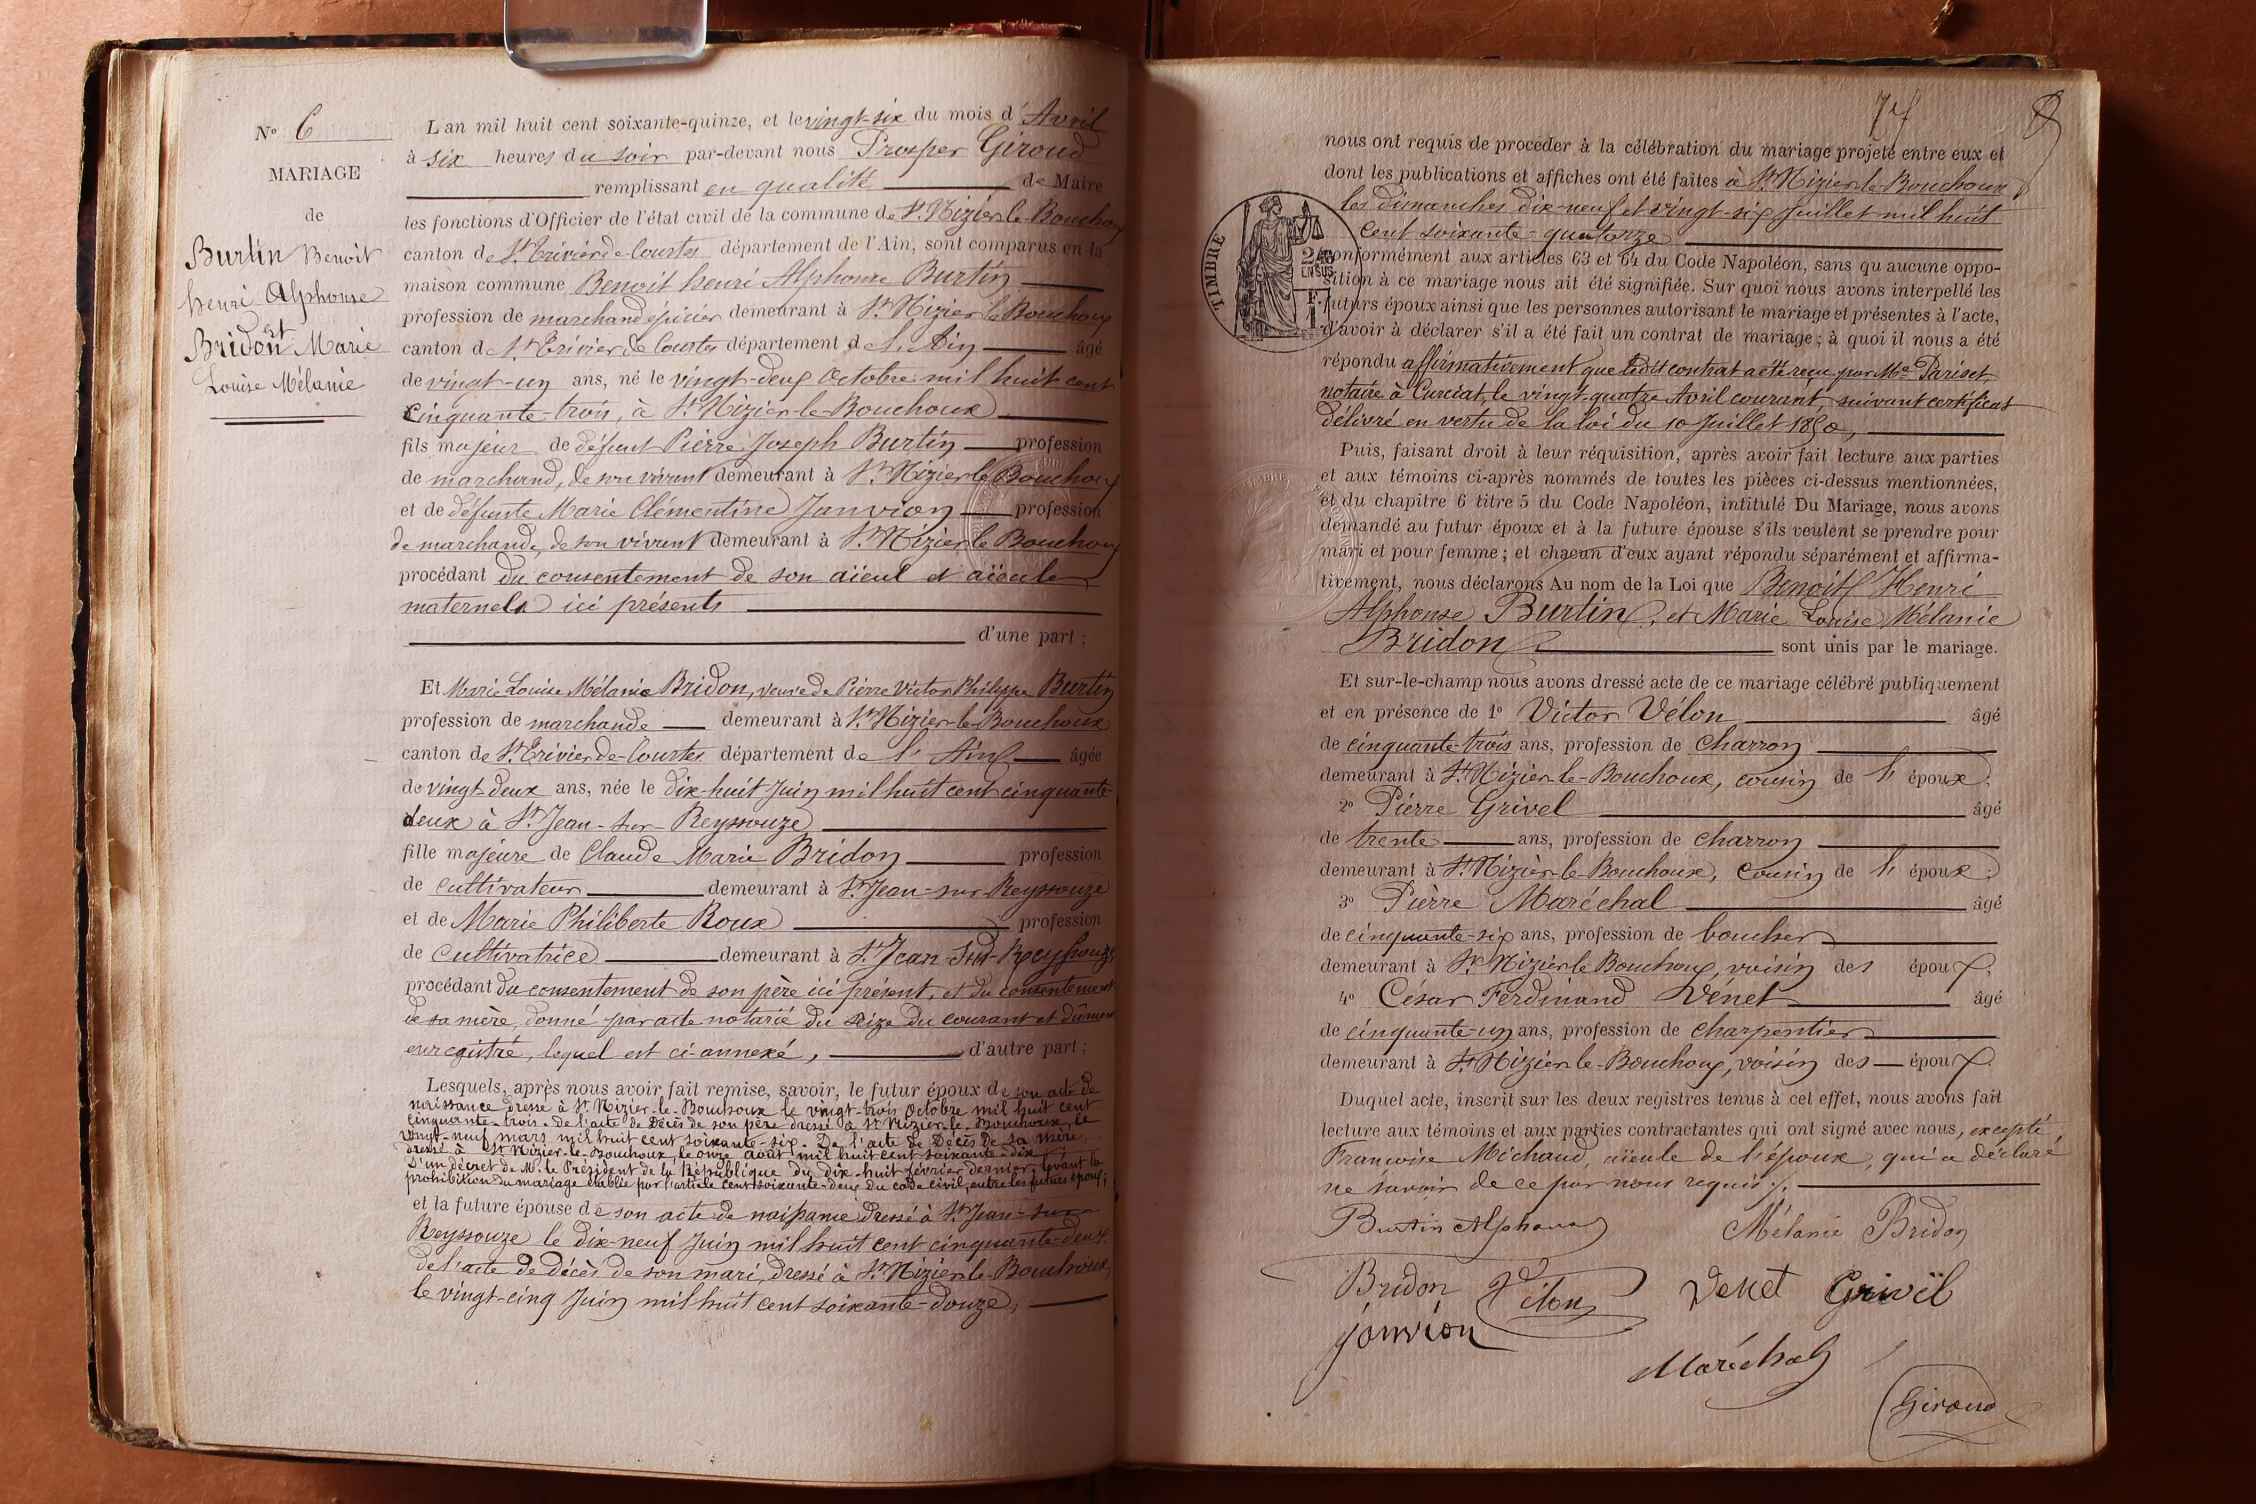 N° 6
MARIAGE
de
Burtin Benoit
henri Alphonse
et
Bridon Marie
Louise Mélanie
L'an mil huit cent soixante-quinze, et le vingt-six du mois d'Avril
à six heures du soir par-devant nous Prosper Giroud
remplissant en qualité de Maire
les fonctions d'Officier de l'état civil de la commune de St. Nizier-le-Bouchoux
canton de St. Trivier de Courtes département de l'Ain, sont comparus en la
maison commune Benoit henri Alphonse Burtin
profession de marchand épicier demeurant à St. Nizier le Bouchoux
canton de St. Trivier de Courtes département de l'Ain âgé
de vingt-un ans, né le vingt-deux Octobre mil huit cent
cinquante-trois, à St. Nizier-le-Bouchoux
fils majeur de défunt Pierre Joseph Burtin profession
de marchand, de son vivant demeurant à St. Nizier le Bouchoux
et de défunte Marie Clémentine Janvion profession
de marchande, de son vivant demeurant à St. Nizier le Bouchoux
procédant du consentement de son aïeul et aïeule
maternels ici présents
d'une part ;
Et Marie Louise Mélanie Bridon, veuve de Pierre Victor Philippe Burtin
profession de marchande demeurant à St. Nizier-le-Bouchoux
canton de St. Trivier-de-Courtes département de l'Ain âgée
de vingt-deux ans, née le dix-huit Juin mil huit cent cinquante-
deux à St. Jean-sur-Reyssouze
fille majeure de Claude Marie Bridon profession
de cultivateur demeurant à St. Jean-sur-Reyssouze
et de Marie Philiberte Roux profession
de cultivatrice demeurant à St. Jean-sur-Reyssouze,
procédant du consentement de son père ici présent, et du consentement
de sa mère, donné par acte notarié du seize du courant et dûment
enregistré, lequel est ci-annexé, d'autre part ;
Lesquels, après nous avoir fait remise, savoir, le futur époux de son acte de
naissance dressé à St. Nizier-le-Bouchoux le vingt-trois Octobre mil huit cent
cinquante-trois. De l'acte de Décès de son père dressé à St Nizier-le-Bouchoux, le
vingt-neuf mars mil huit cent soixante-six. De l'acte de Décès de sa mère,
dressé à St Nizier-le-Bouchoux, le onze août mil huit cent soixante-dix.
D'un décret de Mr. le Président de la République du dix-huit février dernier, levant la
prohibition du mariage établie par l'article cent soixante-deux du code civil, entre les futurs époux ;
et la future épouse de son acte de naissance dressé à St. Jean-sur-
Reyssouze le dix-neuf Juin mil huit cent cinquante-deux.
de l'acte de décès de son mari, dressé à St. Nizier-le-Bouchoux,
le vingt-cinq Juin mil huit cent soixante-douze,
nous ont requis de procéder à la célébration du mariage projeté entre eux et
dont les publications et affiches ont été faites à St. Nizier-le-Bouchoux
les dimanches dix-neuf et vingt-six Juillet mil huit
cent soixante-quatorze
TIMBRE
conformément aux articles 63 et 64 du Code Napoléon, sans qu'aucune oppo-
sition à ce mariage nous ait été signifiée. Sur quoi nous avons interpellé les
futurs époux ainsi que les personnes autorisant le mariage et présentes à l'acte,
d'avoir à déclarer s'il a été fait un contrat de mariage ; à quoi il nous a été
répondu affirmativement que ledit contrat a été reçu par Me Pariset,
notaire à Curciat, le vingt-quatre Avril courant, suivant certificat
délivré en vertu de la loi du 10 Juillet 1850,
Puis, faisant droit à leur réquisition, après avoir fait lecture aux parties
et aux témoins ci-après nommés de toutes les pièces ci-dessus mentionnées,
et du chapitre 6 titre 5 du Code Napoléon, intitulé Du Mariage, nous avons
demandé au futur époux et à la future épouse s'ils veulent se prendre pour
mari et pour femme ; et chacun d'eux ayant répondu séparément et affirma-
tivement, nous déclarons Au nom de la Loi que Benoit Henri
Alphonse Burtin, et Marie Louise Mélanie
Bridon sont unis par le mariage.
Et sur-le-champ nous avons dressé acte de ce mariage célébré publiquement
et en présence de 1° Victor Vélon âgé
de cinquante-trois ans, profession de charron
demeurant à St. Nizier-le-Bouchoux, cousin de l' époux.
2° Pierre Grivel âgé
de trente ans, profession de charron
demeurant à St. Nizier-le-Bouchoux, cousin de l' époux.
3° Pierre Maréchal âgé
de cinquante-six ans, profession de boucher
demeurant à St. Nizier le Bouchoux, voisin des époux.
4° César Ferdinand Vénet âgé
de cinquante-un ans, profession de charpentier
demeurant à St. Nizier-le-Bouchoux, voisin des époux.
Duquel acte, inscrit sur les deux registres tenus à cet effet, nous avons fait
lecture aux témoins et aux parties contractantes qui ont signé avec nous, excepté
Françoise Michaud, aïeule de l'époux, qui a déclaré
ne savoir de ce par nous requis ./.
Burtin Alphonse Mélanie Bridon
Bridon Vélon Venet Grivel
Janvion
Maréchal
Giroud